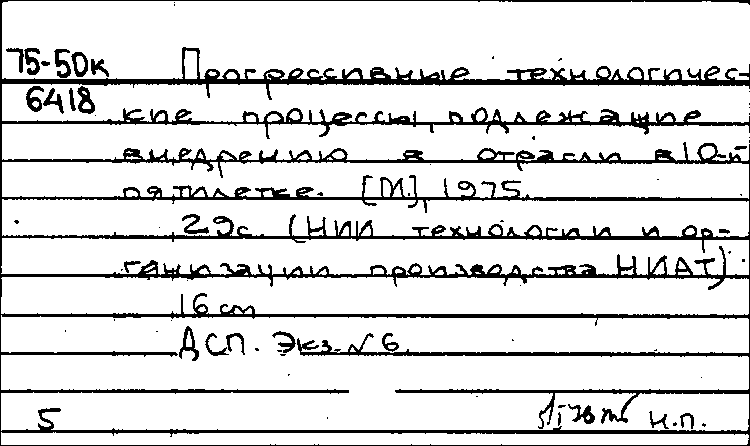 75-50к Прогрессивные технологичес-
6418 кие процессы, подлежащие
внедрению в отрасли в 10-й
пятилетке. [М.], 1975.
29с. (НИИ технологии и ор-
ганизации производства НИАТ)
16 cm
ДСП. Экз. №6.
5 н.п.